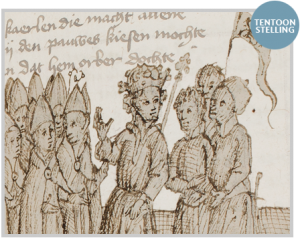 kaerlen die macht allene
den pauwes kiesen mochte
dat hem orber dochte
TENTOON
STELLING